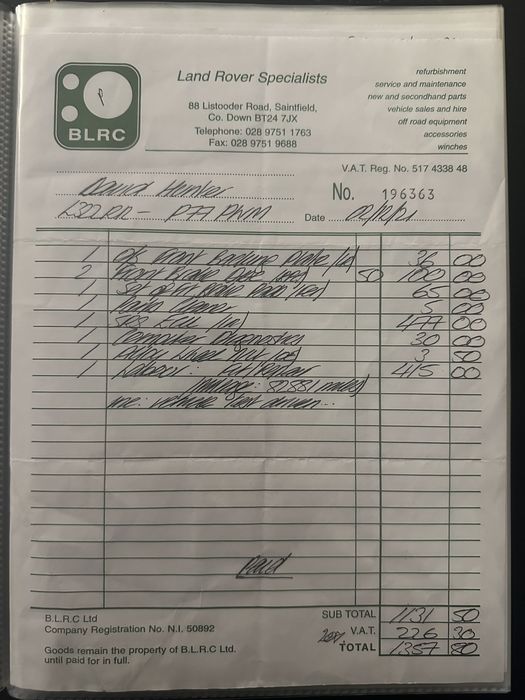 Land Rover Specialists
88 Listooder Road, Saintfield,
Co. Down BT24 7JX
Telephone: 028 9751 1763
Fax: 028 9751 9688
BLRC
refurbishment
service and maintenance
new and secondhand parts
vehicle sales and hire
off road equipment
accessories
winches
V.A.T. Reg. No. 517 4338 48
David
No. 196363
Date 02/12/21
1 Front Backing Plate 36 00
2 Front Brake 50 100 00
1 Set of Frt Brake Pads 65 00
1 Brake Cleaner 5 00
1 477 00
1 Computer Diagnostics 30 00
1 Wheel Nut 3 50
1 Labour: 415 00
(mileage: 80581 miles)
inc: vehicle test driven...
Paid
B.L.R.C Ltd
Company Registration No. N.I. 50892
Goods remain the property of B.L.R.C Ltd.
until paid for in full.
SUB TOTAL 1131 50
20% V.A.T. 226 30
TOTAL 1357 80